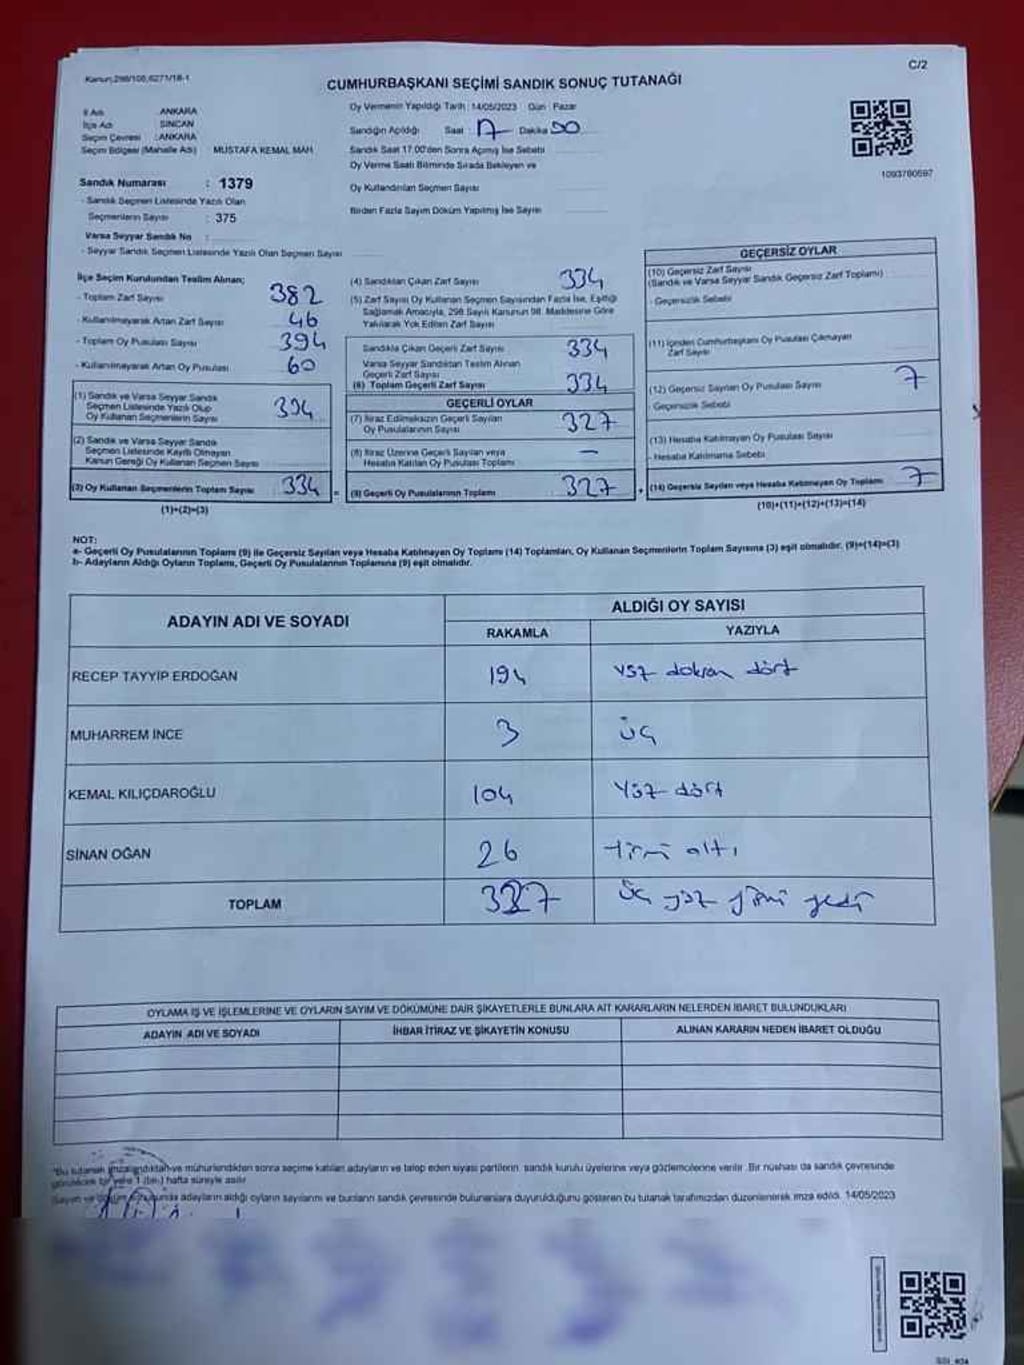 Kanun:298/105,6271/18-1
C/2
CUMHURBAŞKANI SEÇİMİ SANDIK SONUÇ TUTANAĞI
İl Adı ANKARA
İlçe Adı SİNCAN
Seçim Çevresi : ANKARA
Seçim Bölgesi (Mahalle Adı) MUSTAFA KEMAL MAH.
Sandık Numarası : 1379
- Sandık Seçmen Listesinde Yazılı Olan
Seçmenlerin Sayısı : 375
Varsa Seyyar Sandık No :
- Seyyar Sandık Seçmen Listesinde Yazılı Olan Seçmen Sayısı
Oy Vermenin Yapıldığı Tarih : 14/05/2023 Gün : Pazar
Sandığın Açıldığı Saat : 17 Dakika 00
Sandık Saat 17.00'den Sonra Açılmış İse Sebebi
Oy Verme Saati Bitiminde Sırada Bekleyen ve
Oy Kullandırılan Seçmen Sayısı
Birden Fazla Sayım Döküm Yapılmış İse Sayısı
1093760597
İlçe Seçim Kurulundan Teslim Alınan;
- Toplam Zarf Sayısı 382
- Kullanılmayarak Artan Zarf Sayısı 46
- Toplam Oy Pusulası Sayısı 394
- Kullanılmayarak Artan Oy Pusulası 60
(1) Sandık ve Varsa Seyyar Sandık
Seçmen Listesinde Yazılı Olup
Oy Kullanan Seçmenlerin Sayısı 334
(2) Sandık ve Varsa Seyyar Sandık
Seçmen Listesinde Kayıtlı Olmayan
Kanun Gereği Oy Kullanan Seçmen Sayısı
(3) Oy Kullanan Seçmenlerin Toplam Sayısı 334 =
(1)+(2)=(3)
(4) Sandıktan Çıkan Zarf Sayısı 334
(5) Zarf Sayısı Oy Kullanan Seçmen Sayısından Fazla İse, Eşitliği
Sağlamak Amacıyla, 298 Sayılı Kanunun 98. Maddesine Göre
Yakılarak Yok Edilen Zarf Sayısı
Sandıkta Çıkan Geçerli Zarf Sayısı 334
Varsa Seyyar Sandıktan Teslim Alınan
Geçerli Zarf Sayısı
(6) Toplam Geçerli Zarf Sayısı 334
GEÇERLİ OYLAR
(7) İtiraz Edilmeksizin Geçerli Sayılan
Oy Pusulalarının Sayısı 327
(8) İtiraz Üzerine Geçerli Sayılan veya
Hesaba Katılan Oy Pusulası Toplamı —
(9) Geçerli Oy Pusulalarının Toplamı 327 +
GEÇERSİZ OYLAR
(10) Geçersiz Zarf Sayısı
(Sandık ve Varsa Seyyar Sandık Geçersiz Zarf Toplamı)
- Geçersizlik Sebebi
(11) İçinden Cumhurbaşkanı Oy Pusulası Çıkmayan
Zarf Sayısı
(12) Geçersiz Sayılan Oy Pusulası Sayısı 7
- Geçersizlik Sebebi
(13) Hesaba Katılmayan Oy Pusulası Sayısı
- Hesaba Katılmama Sebebi
(14) Geçersiz Sayılan veya Hesaba Katılmayan Oy Toplamı 7
(10)+(11)+(12)+(13)=(14)
NOT:
a- Geçerli Oy Pusulalarının Toplamı (9) ile Geçersiz Sayılan veya Hesaba Katılmayan Oy Toplamı (14) Toplamları, Oy Kullanan Seçmenlerin Toplam Sayısına (3) eşit olmalıdır. (9)+(14)=(3)
b- Adayların Aldığı Oyların Toplamı, Geçerli Oy Pusulalarının Toplamına (9) eşit olmalıdır.
ADAYIN ADI VE SOYADI ALDIĞI OY SAYISI
RAKAMLA YAZIYLA
RECEP TAYYİP ERDOĞAN 194 yüz doksan dört
MUHARREM İNCE 3 üç
KEMAL KILIÇDAROĞLU 104 Yüz dört
SİNAN OĞAN 26 altı
TOPLAM 327 üç yüz yirmi yedi
OYLAMA İŞ VE İŞLEMLERİNE VE OYLARIN SAYIM VE DÖKÜMÜNE DAİR ŞİKAYETLERLE BUNLARA AİT KARARLARIN NELERDEN İBARET BULUNDUKLARI
ADAYIN ADI VE SOYADI İHBAR İTİRAZ VE ŞİKAYETİN KONUSU ALINAN KARARIN NEDEN İBARET OLDUĞU
*Bu tutanak imzalandıktan ve mühürlendikten sonra seçime katılan adayların ve talep eden siyasi partilerin, sandık kurulu üyelerine veya gözlemcilerine verilir. Bir nüshası da sandık çevresinde
görülecek bir yere 1 (bir) hafta süreyle asılır.
Sayım ve döküm sonucunda adayların aldığı oyların sayılarını ve bunların sandık çevresinde bulunanlara duyurulduğunu gösteren bu tutanak tarafımızdan düzenlenerek imza edildi. 14/05/2023